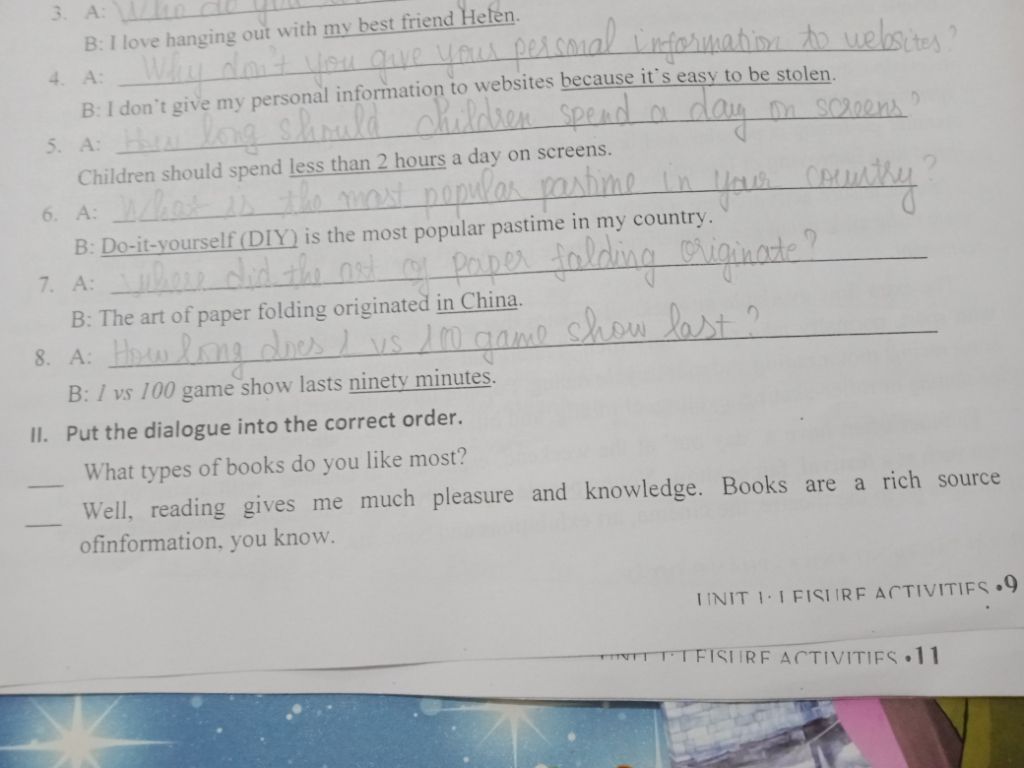 3. A: Who do you
B: I love hanging out with my best friend Helen.
4. A: Why don't you give your personal information to websites?
B: I don't give my personal information to websites because it's easy to be stolen.
5. A: How long should children spend a day on screens?
Children should spend less than 2 hours a day on screens.
6. A: What is the most popular pastime in your country?
B: Do-it-yourself (DIY) is the most popular pastime in my country.
7. A: Where did the art of paper folding originate?
B: The art of paper folding originated in China.
8. A: How long does 1 vs 100 game show last?
B: 1 vs 100 game show lasts ninety minutes.
II. Put the dialogue into the correct order.
___ What types of books do you like most?
___ Well, reading gives me much pleasure and knowledge. Books are a rich source
ofinformation, you know.
UNIT 1: LEISURE ACTIVITIES •9
UNIT 1: LEISURE ACTIVITIES •11